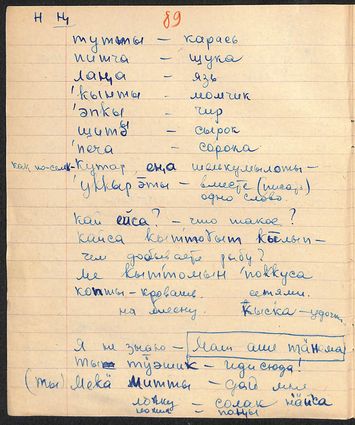 Н Ӊ 89
тутты – карась
питча – щука
лаӊа – язь
'кынты – момчик
'эпкы – чир
щитъ – сырок
'печа – сорока
как по-сельк- кутар, еӊа шелкумылоты –
'уккыр эты – вместе (писать)
одно слово
кай ейса? – что такое?
кайса кыттобыт кылып –
чем добываете рыбу?
Ме кыттомын поккуса
копты – кровать сетями.
на блесну. Кыска – удочк
Я не знаю – Мат аша тӓнома
Ты тӱэшик – иди сюда!
(ты) Мекӓ митты – дай мне
ложку – солак
ножик – паӊы